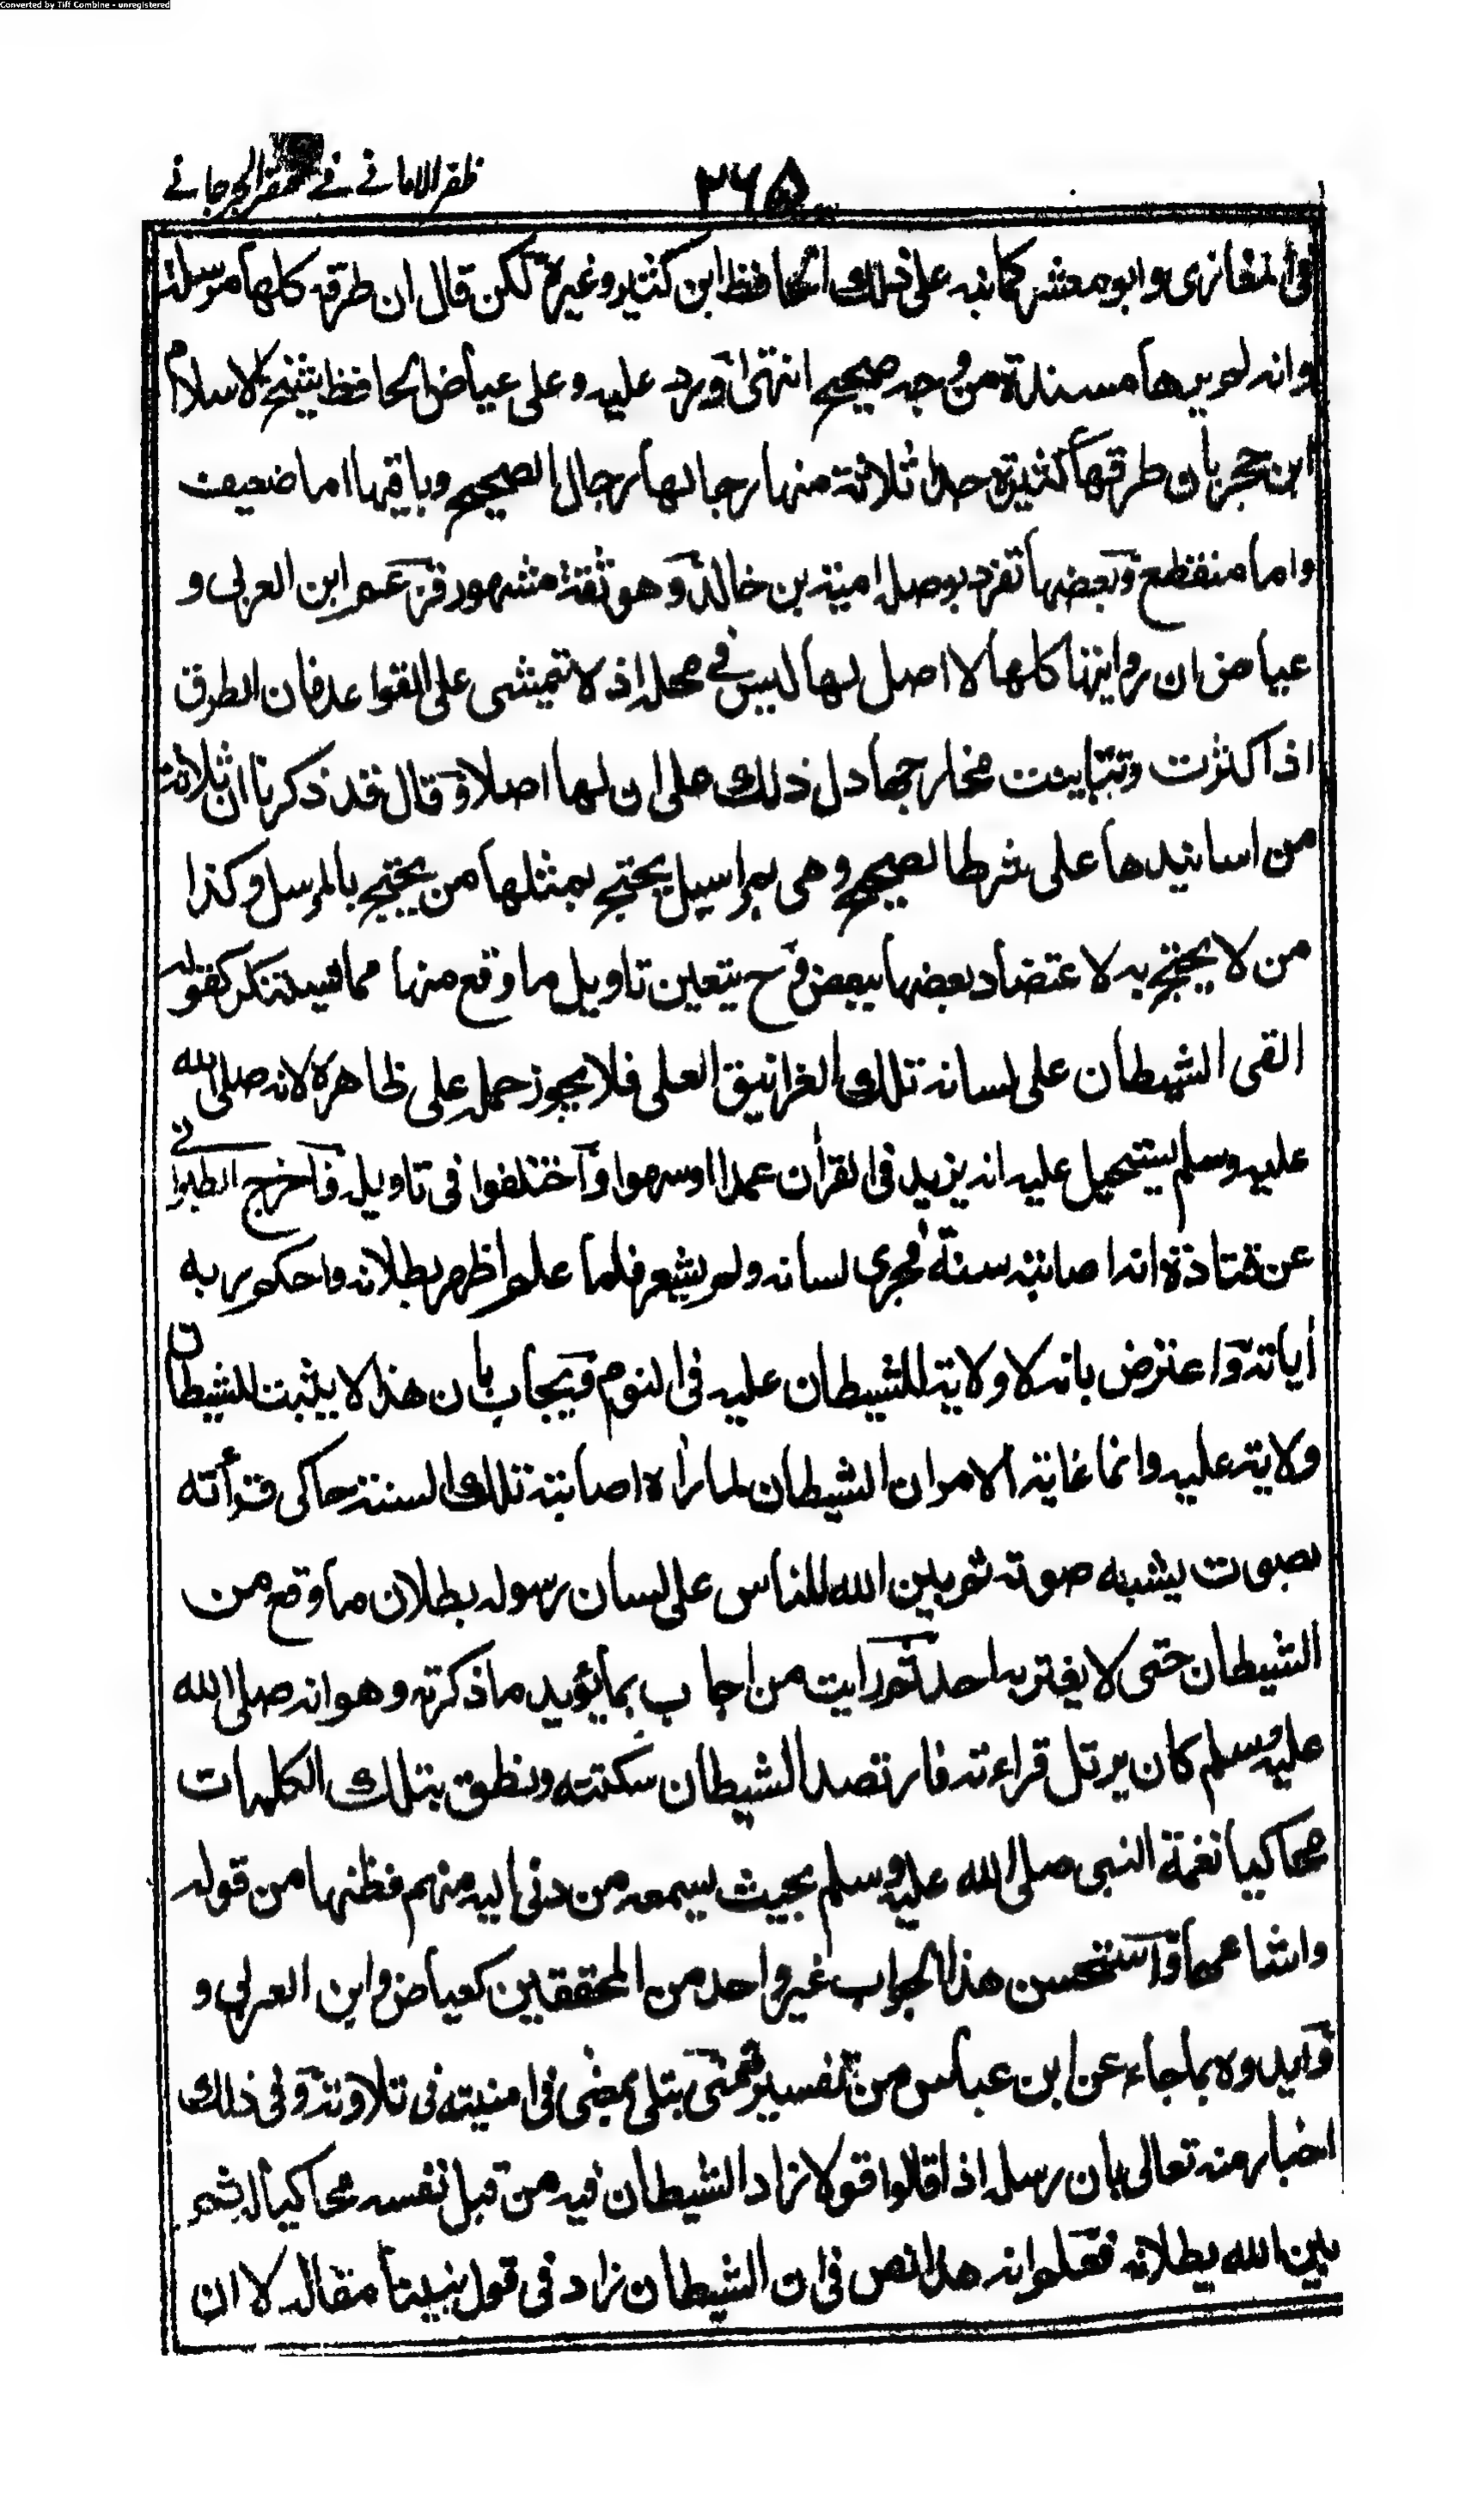 Converted by Tiff Combine - unregistered
ظفر الامانے فے مختصر الجرجانے
٢٦٥
فی المغازی وابو معشر کما نبہ علی ذلک الحافظ ابن کثیر وغیرہ لکن قال ان طرقہ کلہا مرسلۃ
وانہ لم یرھا مسندۃ من وجہ صحیح انتہی ورد علیہ وعلی عیاض الحافظ شیخ الاسلام
ابن حجر بان طرقھا کثیرۃ جدا ثلاثۃ منہا رجالہا رجال الصحیح وباقیہا اما ضعیف
واما منقطع وبعضہا تفرد بوصلہ امیۃ بن خالد وھو ثقۃ مشہور فزعم ابن العربی و
عیاض ان روایتہا کلہا لا اصل لہا لیس فے محلہ اذ لا تمیشی علی القواعد فان الطرق
اذا کثرت وتباینت مخارجہا دل ذلک علی ان لہا اصلا وقال قد ذکرنا ان ثلاثۃ
من اسانیدھا علی شرط الصحیح وھی مراسیل یحتج بمثلہا من یحتج بالمرسل وکذا
من لا یحتج بہ لاعتضاد بعضہا ببعض وح یتعین تاویل ما وقع منہا مما یستنکر کقولہ
القی الشیطان علی لسانہ تلک الغرانیق العلی فلا یجوز حملہ علی ظاھرہ لانہ صلی اللہ
علیہ وسلم یستحیل علیہ انہ یزید فی القرأن عمدا او سھوا واختلفوا فی تاویلہ فاخرج الطبرانے
عن قتادۃ انہ اصابتہ سنۃ فجری لسانہ ولم یشعر فلما علم اظھر بطلانہ واحکم ربہ
أیاتہ واعترض بانہ لا ولایۃ للشیطان علیہ فی النوم فیجاب بان ھذا لا یثبت للشیطان
ولایۃ علیہ وانما غایۃ الامر ان الشیطان لما رأہ اصابتہ تلک السنۃ حاکی قرأته
بصوت یشبه صوتہ ثم بین اللہ للناس علی لسان رسولہ بطلان ما وقع من
الشیطان حتی لا یغتر بہ احد ثم رایت من اجاب بما یؤید ما ذکرتہ وھو انہ صلی اللہ
علیہ وسلم کان یرتل قراءتہ فارتصد الشیطان سکتته ونطق بتلک الکلمات
محاکیا نغمۃ النبی صلی اللہ علیہ وسلم بحیث یسمعہ من دنی الیہ منہم فظنہا من قولہ
واشاعہا واستحسن ھذا الجواب غیر واحد من المحققین کعیاض وابن العربی و
وایدوہ بما جاء عن ابن عباس من تفسیر تمنی بتلی بمعنی فی امنیته فی تلاوتہ وفی ذلک
اخبار منہ تعالی بان رسلہ اذا قالوا قولا زاد الشیطان فیہ من قبل نفسہ محاکیا لہ ثم
یبین اللہ بطلانہ فعلم انہ ھذا نص فی ان الشیطان زاد فی قول نبینا مقالہ لا ان